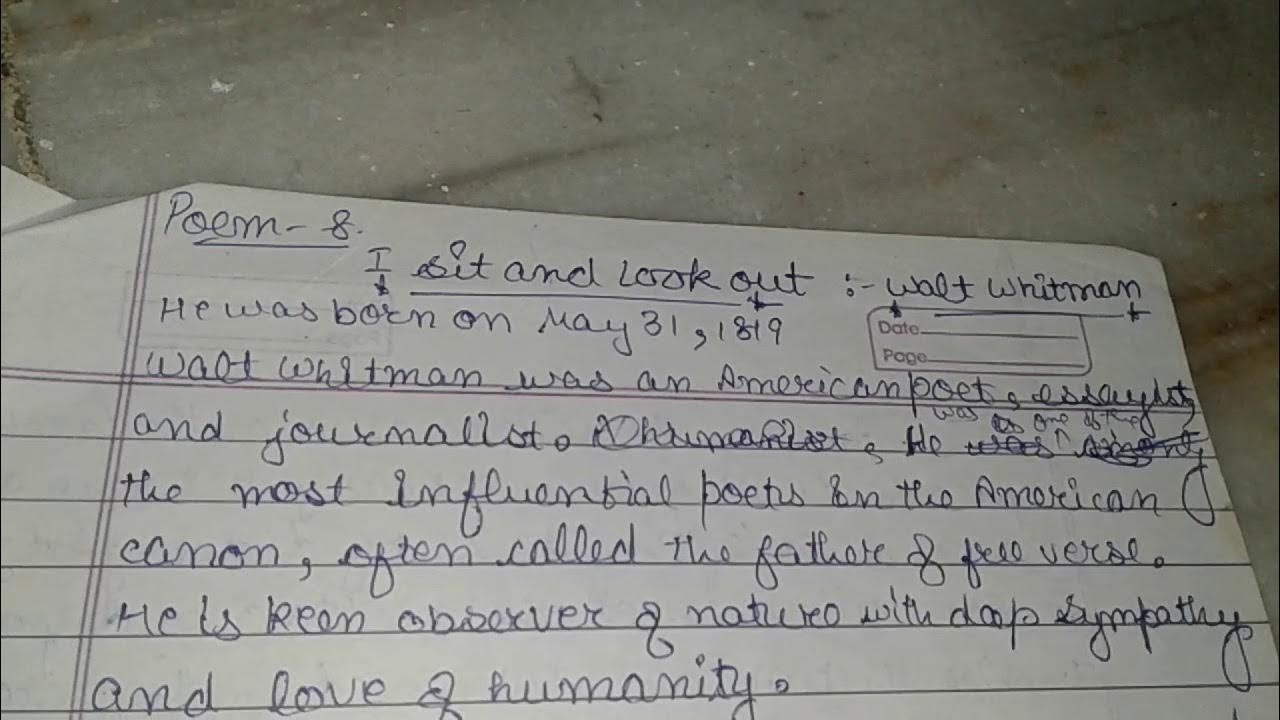 Poem - 8.
I sit and Look out :- Walt Whitman
He was born on May 31, 1819
Date
Page
Walt Whitman was an American poet, essayist,
and journalist. A humanist, He was as one of the
the most influential poets in the American
canon, often called the father of free verse.
He is keen observer of nature with deep sympathy
and love of humanity.